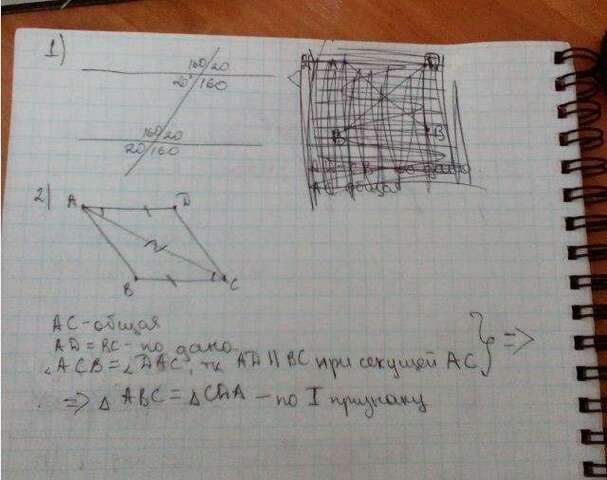 1)
160 20
20° 160
160 20
20 160
2) A D
B C
AC - общая
AD = BC - по дано
∠ACB = ∠DAC, тк AD || BC при секущей AC } =>
=> △ABC = △CDA - по I признаку